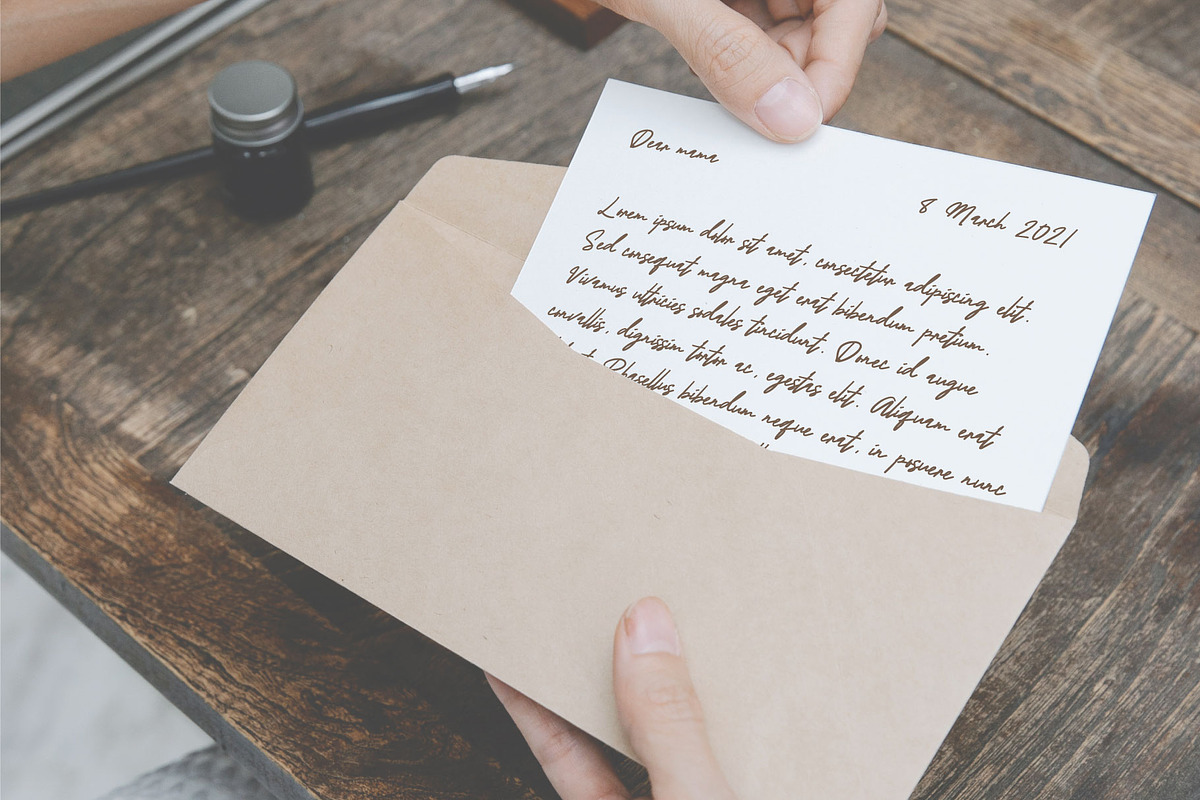 Dear mama
8 March 2021
Lorem ipsum dolor sit amet, consectetur adipiscing elit.
Sed consequat magna eget erat bibendum pretium.
Vivamus ultricies sodales tincidunt. Donec id augue
convallis, dignissim tortor ac, egestas elit. Aliquam erat
Phasellus bibendum neque erat, in posuere nunc